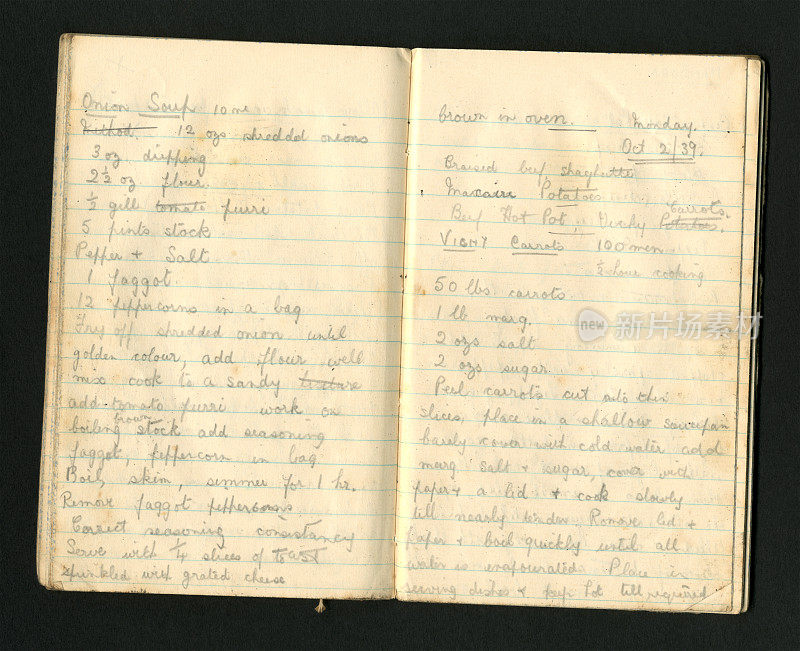 Onion Soup 10 me
Method. 12 ozs shreddd onions
3 oz dripping
2½ oz flour.
½ gill tomato purri
5 pints stock
Pepper + Salt
1 faggot
12 peppercorns in a bag
Fry off shredded onion until
golden colour, add flour well
mix cook to a sandy texture
add tomato purri work on
boiling brown stock add seasoning
faggot, peppercorn in bag
Boil, skim, simmer for 1 hr.
Remove faggot peppercorns
Correct seasoning consistancy
Serve with ¼ slices of toast
sprinkled with grated cheese
brown in oven. Monday.
Oct 2/39.
Braised beef, shaghutti
Macaire Potatoes
Beef Hot Pot, Vichy Potatoes. Carrots.
VICHY Carrots 100 men
½ hour cooking
50 lbs carrots
1 lb marg.
2 ozs salt
2 ozs sugar.
Peel carrots cut into thin
slices, place in a shallow saucepan
barely cover with cold water add
marg salt + sugar, cover with
paper + a lid + cook slowly
till nearly tender. Remove lid +
paper + boil quickly until all
water is evapourated. Place in
serving dishes + keep hot till required
new 新片场素材